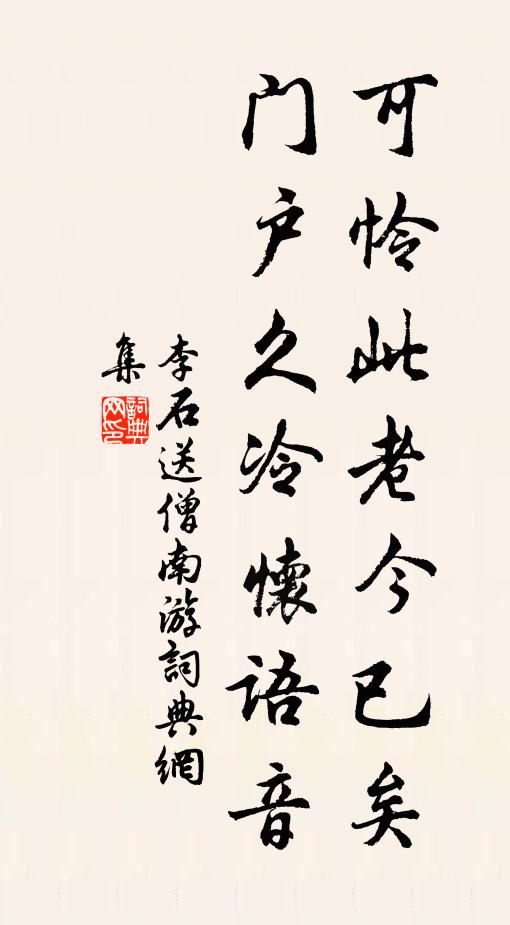 可怜此老今已矣
門户久冷懷語音
李石送僧南游詞典網
集
詞典
网印